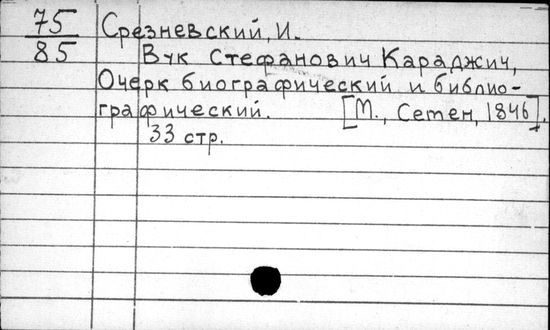 75 Срезневский, И.
85 Вук Стефанович Караджич,
Очерк биографический и библио-
графический. [М., Семен, 1846].
33 стр.